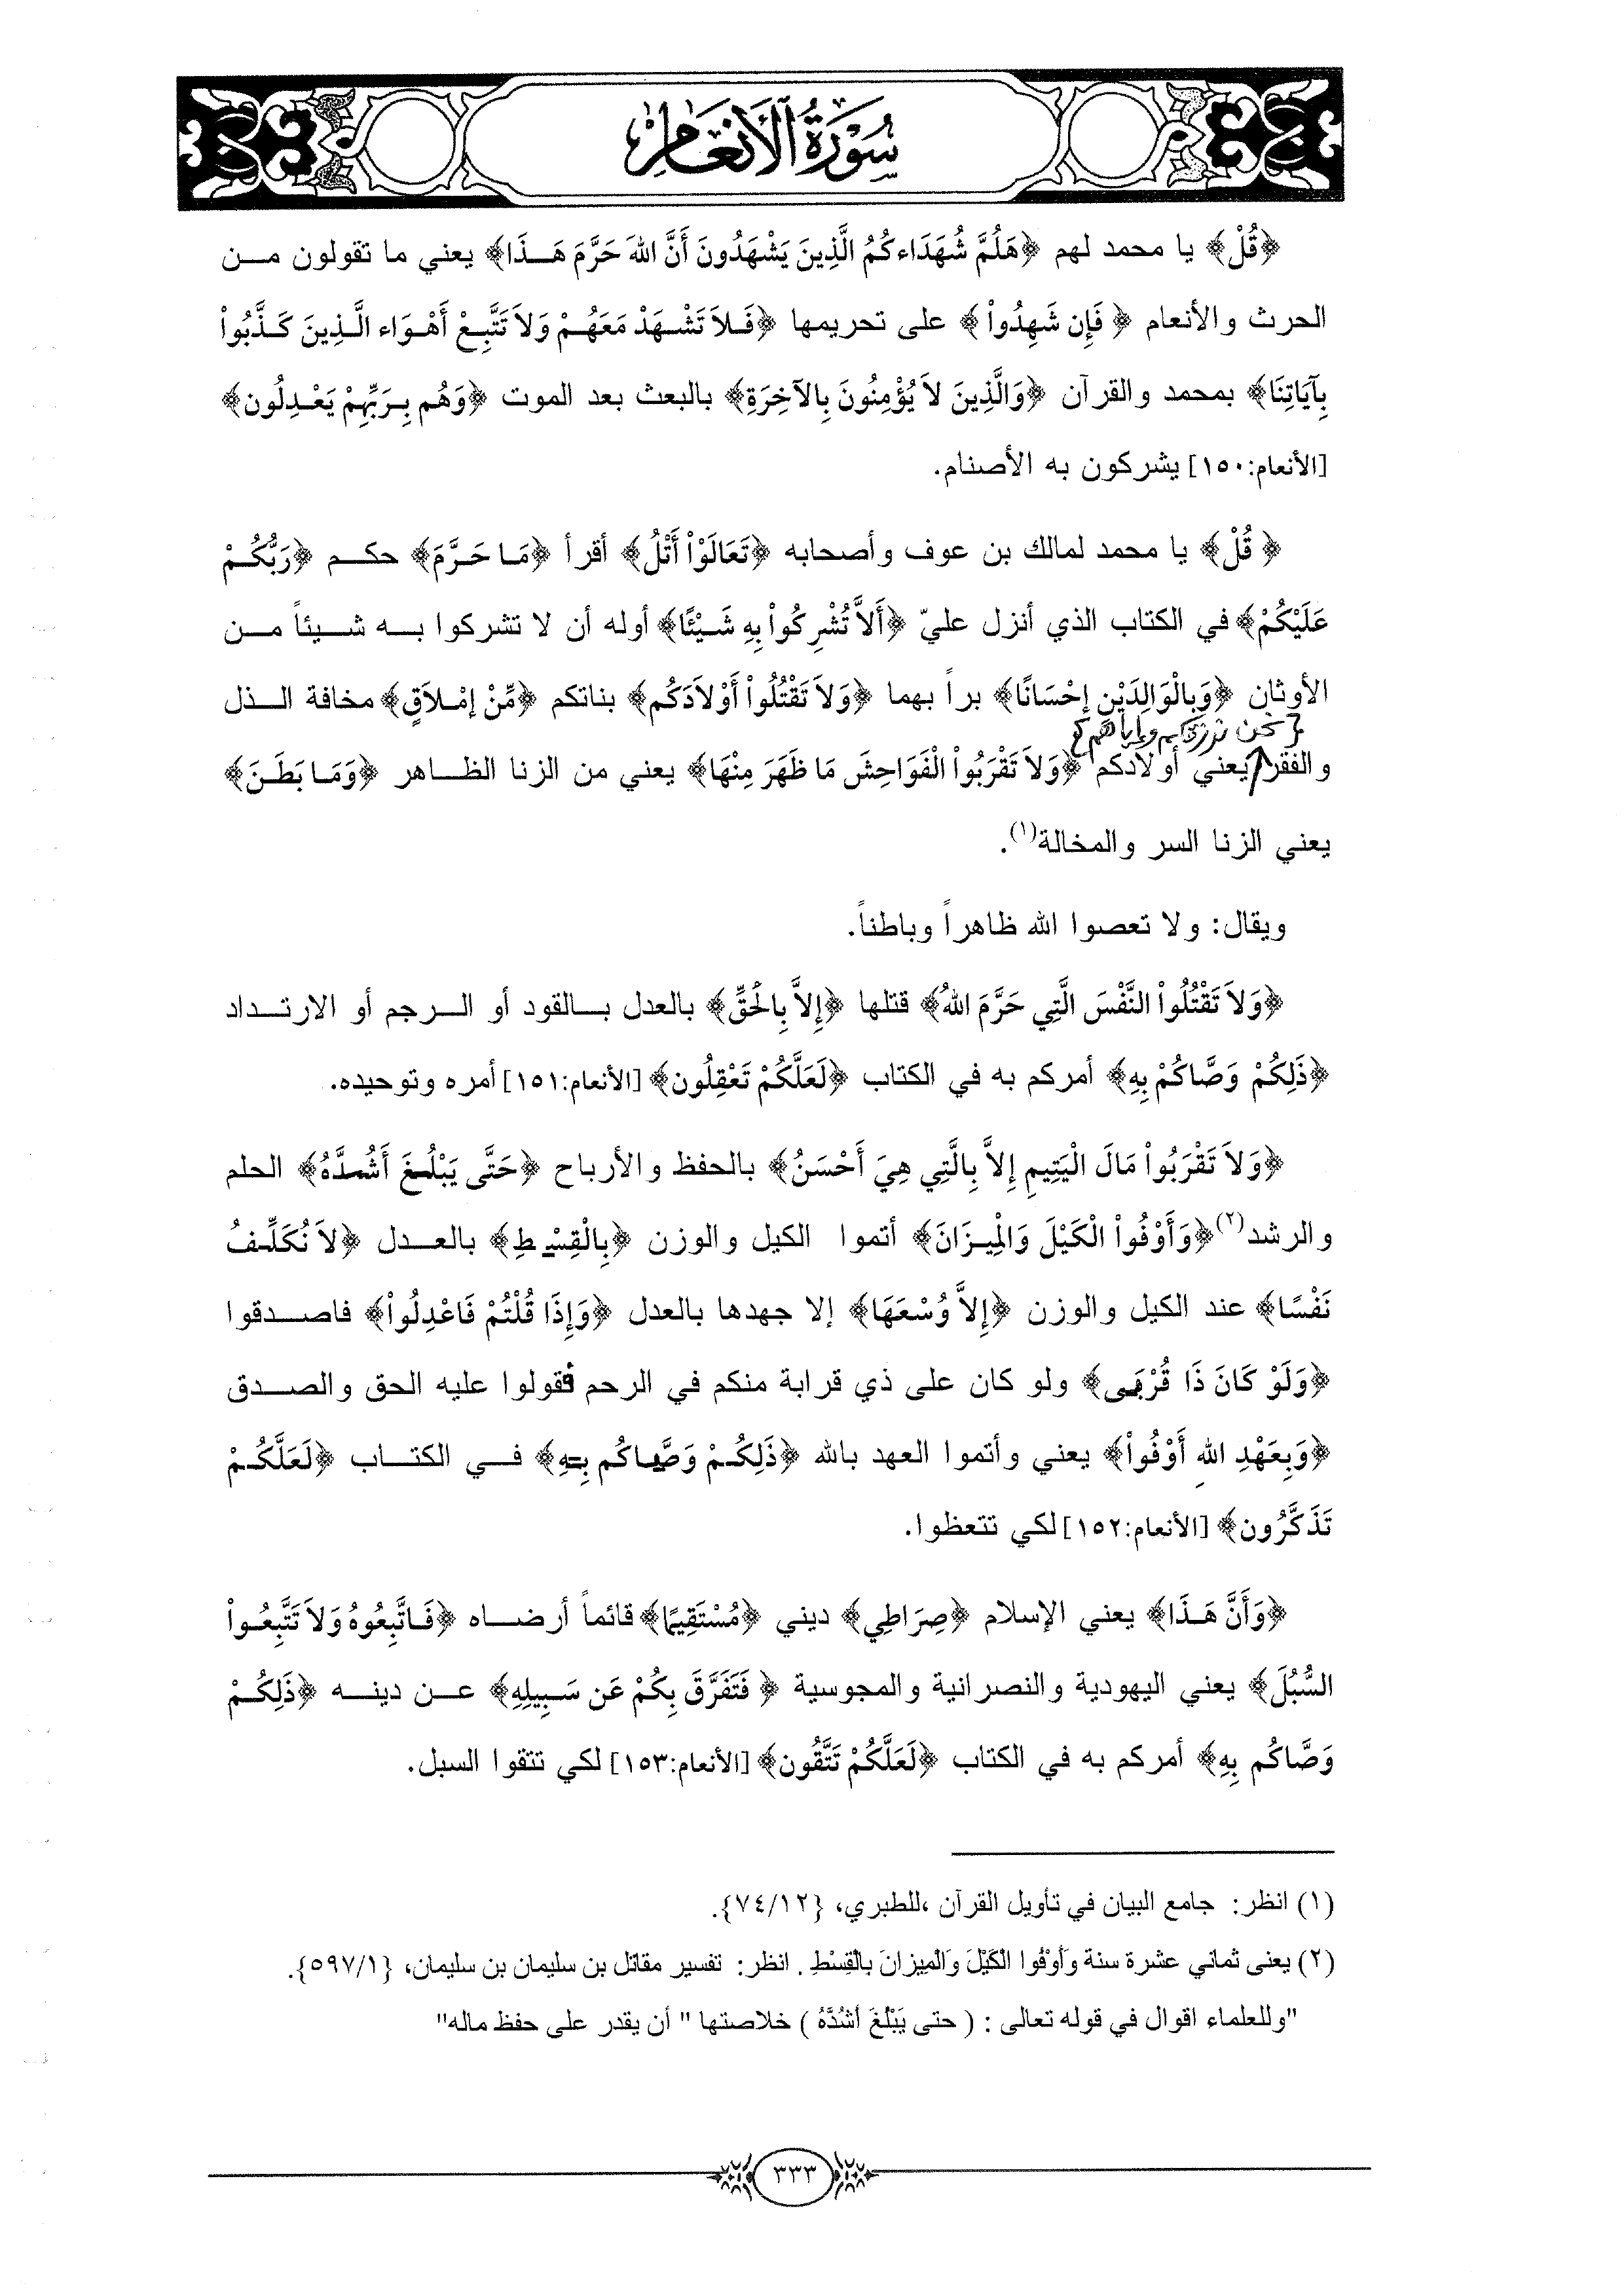 سُورَةُ الأَنعَامِ
﴿قُلْ﴾ يا محمد لهم ﴿هَلُمَّ شُهَدَاءكُمُ الَّذِينَ يَشْهَدُونَ أَنَّ اللهَ حَرَّمَ هَـذَا﴾ يعني ما تقولون مـن
الحرث والأنعام ﴿ فَإِن شَهِدُواْ ﴾ على تحريمها ﴿فَـلاَ تَشْـهَدْ مَعَهُـمْ وَلاَ تَتَّبِـعْ أَهْـوَاء الَّـذِينَ كَـذَّبُواْ
بِآيَاتِنَا﴾ بمحمد والقرآن ﴿وَالَّذِينَ لاَ يُؤْمِنُونَ بِالآخِرَةِ﴾ بالبعث بعد الموت ﴿وَهُم بِـرَبِّهِمْ يَعْـدِلُون﴾
[الأنعام:١٥٠] يشركون به الأصنام.
﴿ قُلْ﴾ يا محمد لمالك بن عوف وأصحابه ﴿تَعَالَوْاْ أَتْلُ﴾ أقرأ ﴿مَـا حَـرَّمَ﴾ حكـم ﴿رَبُّكُـمْ
عَلَيْكُمْ﴾ في الكتاب الذي أنزل عليّ ﴿أَلاَّ تُشْرِكُواْ بِهِ شَـيْئًا﴾ أوله أن لا تشركوا بـه شـيئاً مـن
الأوثان ﴿وَبِالْوَالِدَيْنِ إِحْسَانًا﴾ براً بهما ﴿وَلاَ تَقْتُلُواْ أَوْلاَدَكُم﴾ بناتكم ﴿مِّنْ إمْـلاَقٍ﴾ مخافة الـذل
{نحن نرزقكم وإياهم}
والفقر يعني أولادكم ﴿وَلاَ تَقْرَبُواْ الْفَوَاحِشَ مَا ظَهَرَ مِنْهَا﴾ يعني من الزنا الظـاهر ﴿وَمَـا بَطَـنَ﴾
يعني الزنا السر والمخالة(١).
ويقال: ولا تعصوا الله ظاهراً وباطناً.
﴿وَلاَ تَقْتُلُواْ النَّفْسَ الَّتِي حَرَّمَ اللهُ﴾ قتلها ﴿إِلاَّ بِالْحَقِّ﴾ بالعدل بـالقود أو الـرجم أو الارتـداد
﴿ذَلِكُمْ وَصَّاكُمْ بِهِ﴾ أمركم به في الكتاب ﴿لَعَلَّكُمْ تَعْقِلُون﴾ [الأنعام:١٥١] أمره وتوحيده.
﴿وَلاَ تَقْرَبُواْ مَالَ الْيَتِيمِ إِلاَّ بِالَّتِي هِيَ أَحْسَنُ﴾ بالحفظ والأرباح ﴿حَتَّى يَبْلُـغَ أَشُـدَّهُ﴾ الحلم
والرشد(٢) ﴿وَأَوْفُواْ الْكَيْلَ وَالْمِيزَانَ﴾ أتموا الكيل والوزن ﴿بِالْقِسْـطِ﴾ بالعـدل ﴿لاَ نُكَلِّـفُ
نَفْسًا﴾ عند الكيل والوزن ﴿إِلاَّ وُسْعَهَا﴾ إلا جهدها بالعدل ﴿وَإِذَا قُلْتُمْ فَاعْدِلُواْ﴾ فاصـدقوا
﴿وَلَوْ كَانَ ذَا قُرْبَى﴾ ولو كان على ذي قرابة منكم في الرحم فقولوا عليه الحق والصـدق
﴿وَبِعَهْدِ اللهِ أَوْفُواْ﴾ يعني وأتموا العهد بالله ﴿ذَلِكُـمْ وَصَّـاكُم بِـهِ﴾ فـي الكتـاب ﴿لَعَلَّكُـمْ
تَذَكَّرُون﴾ [الأنعام:١٥٢] لكي تتعظوا.
﴿وَأَنَّ هَـذَا﴾ يعني الإسلام ﴿صِرَاطِي﴾ ديني ﴿مُسْتَقِيمًا﴾ قائماً أرضـاه ﴿فَـاتَّبِعُوهُ وَلاَ تَتَّبِعُـواْ
السُّبُلَ﴾ يعني اليهودية والنصرانية والمجوسية ﴿ فَتَفَرَّقَ بِكُمْ عَن سَـبِيلِهِ﴾ عـن دينـه ﴿ذَلِكُـمْ
وَصَّاكُم بِهِ﴾ أمركم به في الكتاب ﴿لَعَلَّكُمْ تَتَّقُون﴾ [الأنعام:١٥٣] لكي تتقوا السبل.
(١) انظر: جامع البيان في تأويل القرآن ،للطبري، {٧٤/١٢}.
(٢) يعنى ثماني عشرة سنة وَأَوْفُوا الْكَيْلَ وَالْمِيزانَ بِالْقِسْطِ . انظر: تفسير مقاتل بن سليمان بن سليمان، {٥٩٧/١}.
"وللعلماء اقوال في قوله تعالى : ( حتى يَبْلُغَ أَشُدَّهُ ) خلاصتها " أن يقدر على حفظ ماله"
٣٣٣